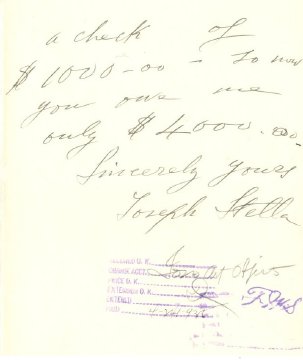 a check of
$1000-00 - So now
you owe me
only $4000.00-
Sincerely yours
Joseph Stella
RECEIVED O. K.
CHARGE ACCT.
PRICE O. K.
EXTENSION O. K.
ENTERED
PAID